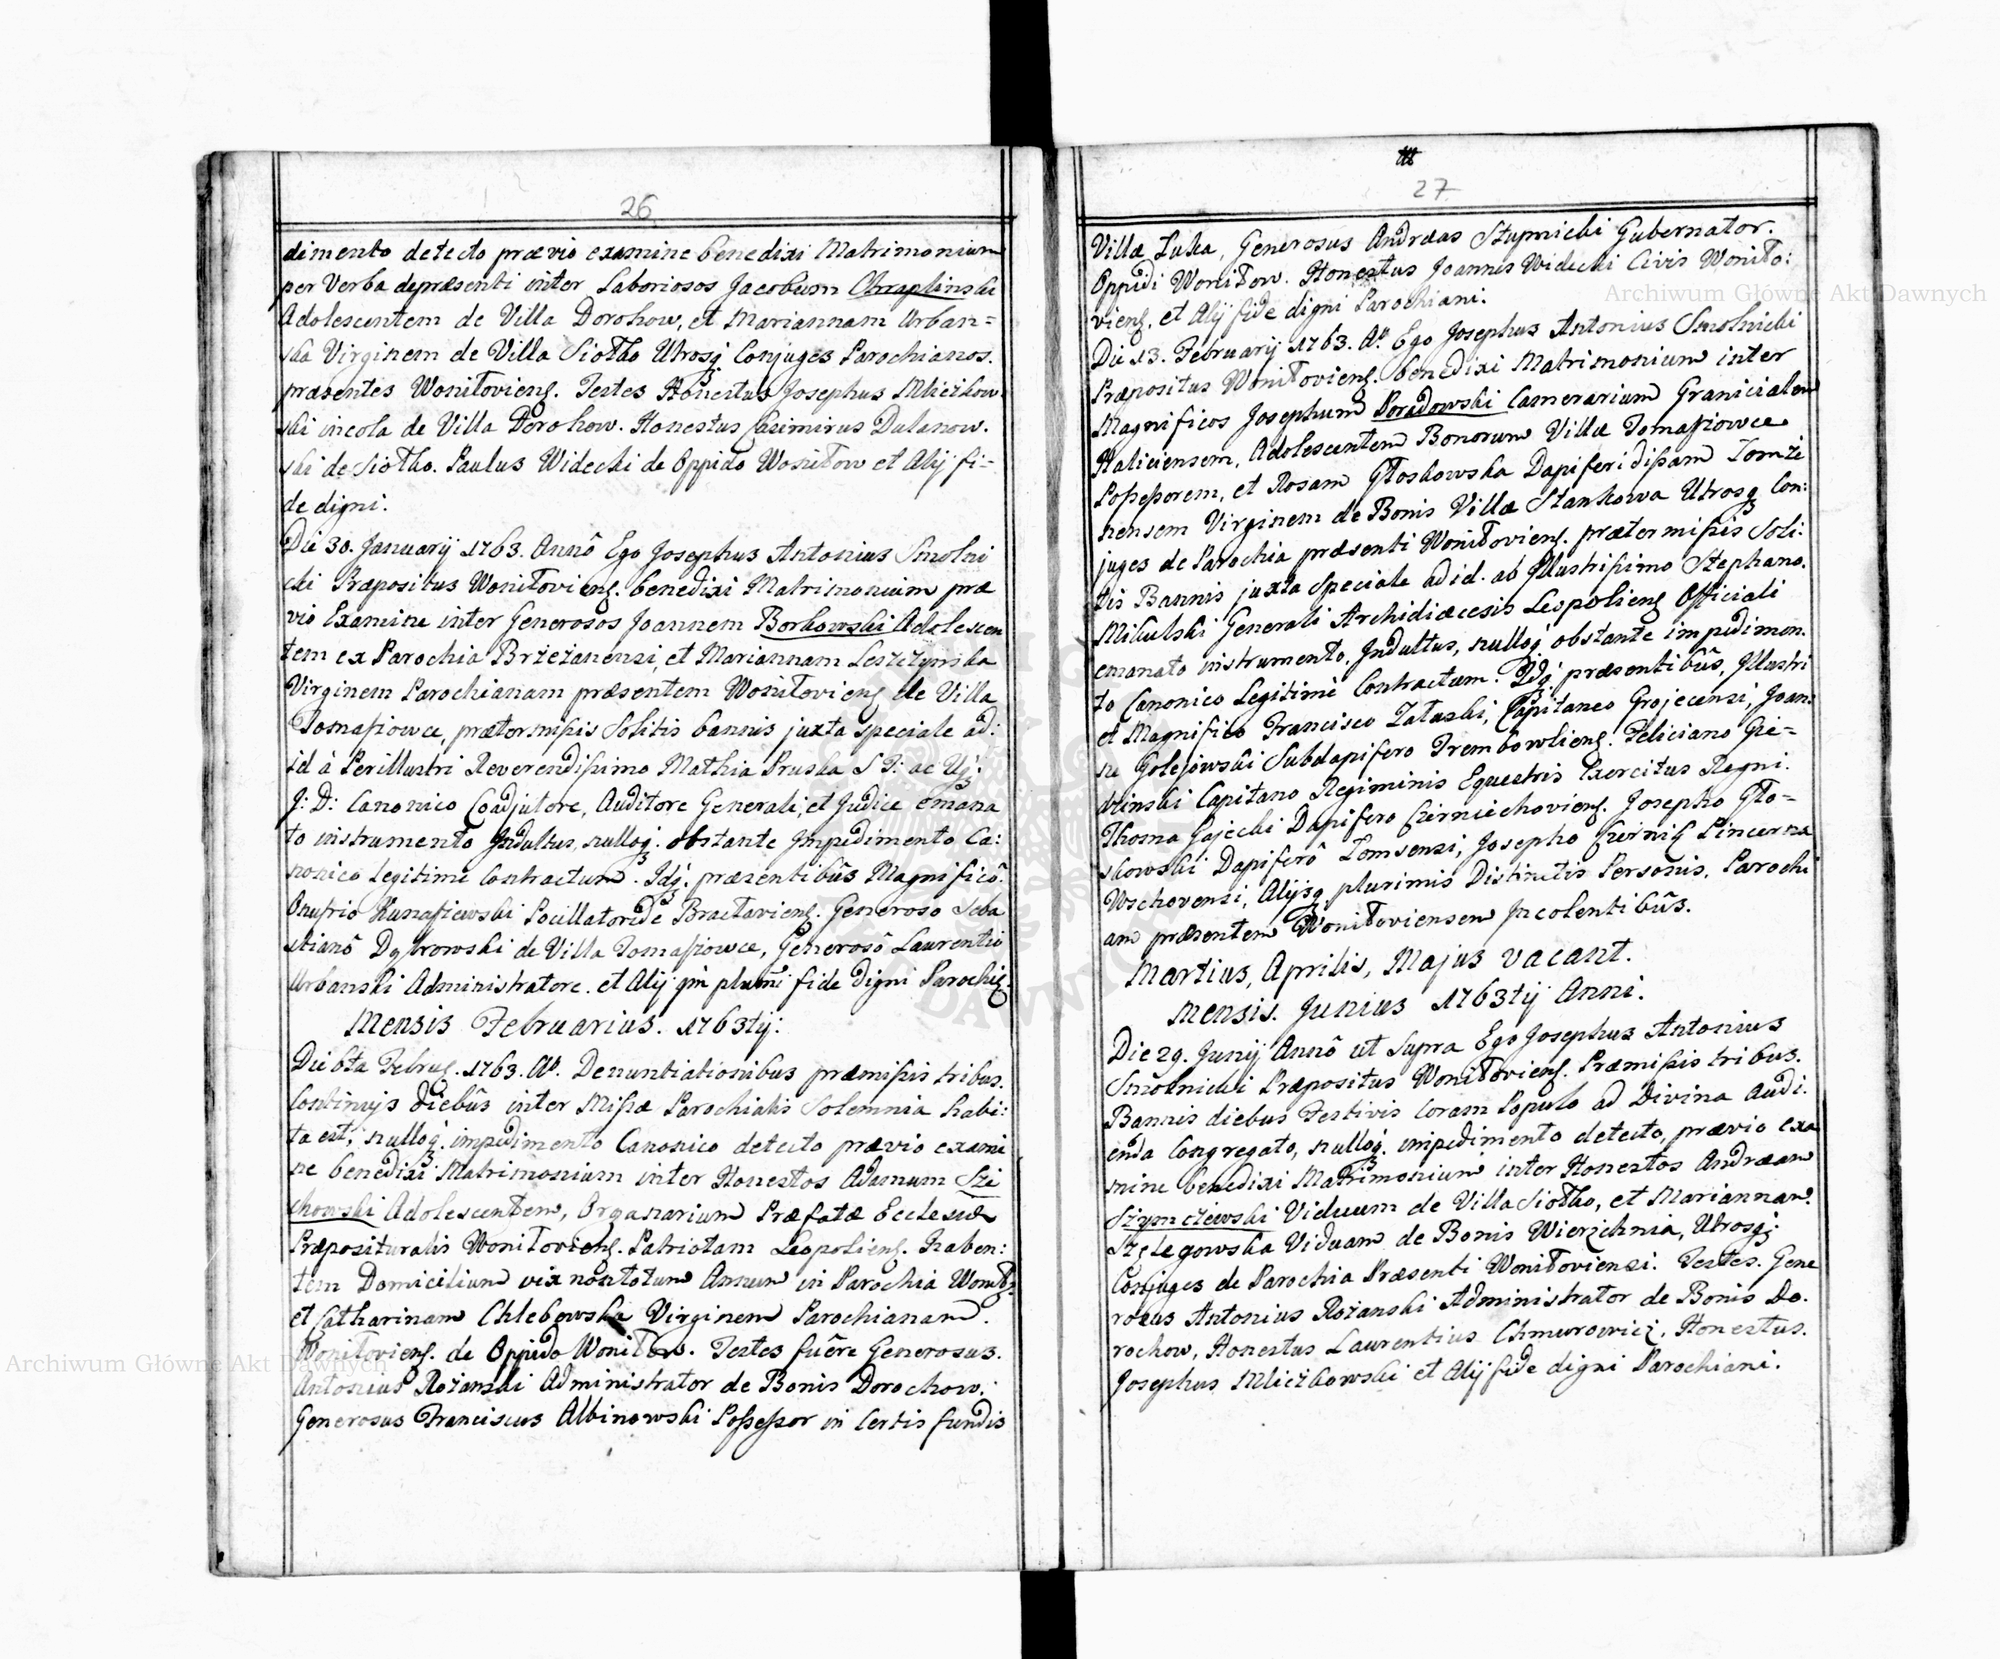 26
dimento detecto prævio examine benedixi Matrimonium
per Verba depræsenti inter Laboriosos Jacobum Chraplinski
Adolescentem de Villa Dorohow, et Mariannam Urban=
ska Virginem de Villa Siołko Utrosq Conjuges Parochianos.
præsentes Woniłovieng. Testes Honestus Josephus Mliczkow
ski incola de Villa Dorohow. Honestus Casimirus Dulanow.
ski de Siołko. Paulus Widecki de Oppido Woniłow et Alij fi=
de digni.
Die 30. Januarij 1763. Annô Ego Josephus Antonius Smolni
cki Præpositus Woniłovieng. benedixi Matrimonium præ
vio Examine inter Generosos Joannem Borkowski Adolescen
tem ex Parochia Brzeżanensi, et Mariannam Leszczynska
Virginem Parochianam præsentem Woniłovieng de Villa
Tomaſiowce, prætermiſsis Solitis bannis juxta speciale ad:
id à Perillustri Reverendiſsimo Mathia Pruska S T: ac Uj.
J: D: Canonico Coadjutore, Auditore Generali, et Judice emana
to instrumento Indultus, nulloq. obstante Impedimento Ca:
nonico Legitime Contractum. Idq. præsentibûs Magnificô.
Onufrio Kunaſiewski Pocillatoride Bractavieng. Generoso Seba
stianô Dąbrowski de Villa Tomaſiowce, Generosô Laurentio
Urbanski Administratore. et Alij qm plurimi fide Digni Parochi.
Mensis Februarius. 1763tij:
Die 6ta Februg. 1763. Ao. Denuntiationibus præmiſsis tribus.
Continujs diebûs inter Miſsæ Parochialis Solemnia habi:
ta est, nulloq. impedimento Canonico detecto prævio exami
ne benedixi Matrimonium inter Honestos Adamum Szi
chowski Adolescentem, Organarium Præfatæ Ecclesiæ
Præposituralis Woniłovieng. Patriotam Leopolieng. haben:
tem Domicilium vix non totum Annum in Parochia Woniłov
et Catharinam Chlebowska Virginem Parochianam.
Woniłovieng. de Oppido Woniłow. Testes fuêre Generosus.
Antonius Rożanski Administrator de Bonis Dorochow.
Generosus Franciscus Albinowski Poſseſsor in Certis fundis
27
Villæ Łuka, Generosus Andræas Stupnicki Gubernator.
Oppidi Woniłow. Honestus Joannes Widecki Civis Woniło:
vieng. et Alij fide digni Parochiani.
Die 13. Februarij 1763. Ao. Ego Josephus Antonius Smolnicki
Præpositus Woniłovieng. benedixi Matrimonium inter
Magnificos Josephum Poradowski Camerarium Granicialem
Haliciensem, Adolescentem Bonorum Villæ Tomaſiowce
Poſseſsorem, et Rosam Głoskowska Dapiferidiſsam Łomzi
nensem Virginem de Bonis Villæ Stankowa Utrosq Con:
juges de Parochia præsenti Woniłovieng. prætermiſsis Soli:
tis Bannis juxta Speciale ad id. ab Illustriſsimo Stephano.
Mikulski Generali Archidiæcesis Leopolieng Officiali
emanato instrumento, Indultus, nulloq obstante impedimen.
to Canonico Legitimè Contractum. Idq præsentibûs, Illustri
et Magnifico Francisco Załuski, Capitaneo Grojecensi, Joan:
ne Golejowski Subdapifero Trembowlieng. Feliciano Gie=
dzinski Capitano Regiminis Equestris Exercitus Regni.
Thoma Gajecki Dapifero Czerniechovieng. Josepho Gło=
skowski Dapiferô Łomsensi, Josepho Czernig Pincerna
Wschovensi, Alijsq plurimis Distinctis Personis, Parochi
am præsentem Woniłoviensem Incolentibûs.
Martius, Aprilis, Majus vacant.
Mensis. Junius 1763tij Anni.
Die 29. Junij Annô ut Supra Ego Josephus Antonius
Smolnicki Præpositus Woniłovieng. Præmiſsis tribus.
Bannis diebus Festivis Coram Populo ad Divina Audi.
enda Congregato, nulloq. impedimento detecto, prævio exa
mine benedixi Matrimonium inter Honestos Andræam
Szymczewski Viduum de Villa Siołko, et Mariannam
Szelegowska Viduam de Bonis Wierzchnia, Utrosq.
Conjuges de Parochia Præsenti Woniłoviensi. Testes. Gene
rosus Antonius Rożanski Administrator de Bonis Do.
rochow, Honestus Laurentius Chmurowicz, Honestus.
Josephus Mliczkowski et Alij fide digni Parochiani.
Archiwum Główne Akt Dawnych
Archiwum Główne Akt Dawnych